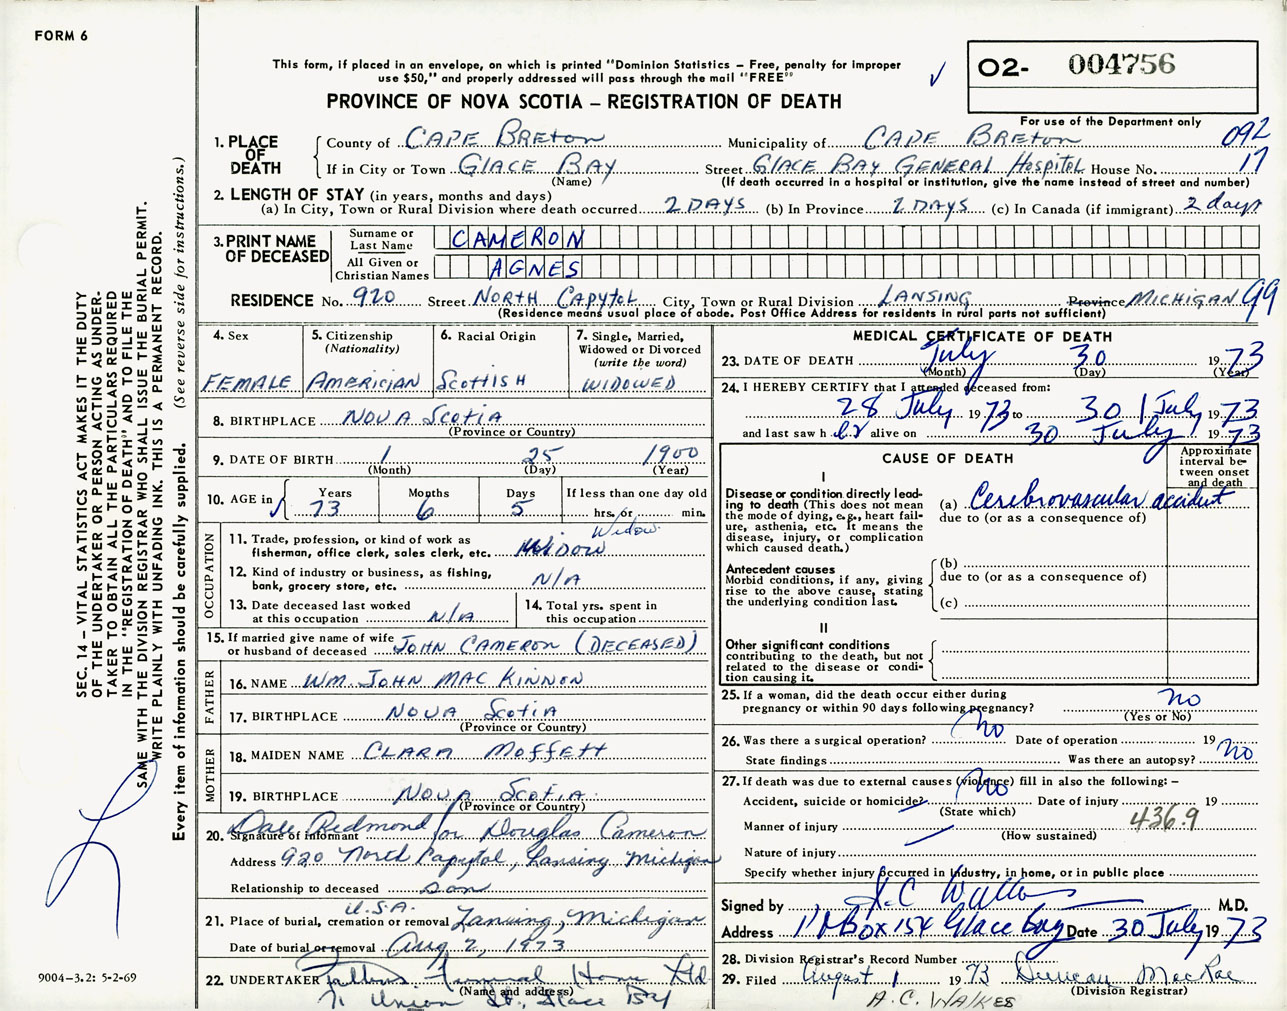 FORM 6
This form, if placed in an envelope, on which is printed "Dominion Statistics – Free, penalty for improper
use $50," and properly addressed will pass through the mail "FREE"
PROVINCE OF NOVA SCOTIA – REGISTRATION OF DEATH
O2- 004756
For use of the Department only
092
17
1. PLACE OF DEATH
County of CAPE BRETON Municipality of CAPE BRETON
If in City or Town GLACE BAY Street GLACE BAY GENERAL HOSPITAL House No.
(Name) (If death occurred in a hospital or institution, give the name instead of street and number)
2. LENGTH OF STAY (in years, months and days)
(a) In City, Town or Rural Division where death occurred 2 DAYS (b) In Province 2 DAYS (c) In Canada (if immigrant) 2 days
3. PRINT NAME OF DECEASED
Surname or Last Name CAMERON
All Given or Christian Names AGNES
RESIDENCE No. 920 Street NORTH CAPYTOL City, Town or Rural Division LANSING Province MICHIGAN 99
(Residence means usual place of abode. Post Office Address for residents in rural parts not sufficient)
4. Sex
FEMALE
5. Citizenship
(Nationality)
AMERICIAN
6. Racial Origin
SCOTTISH
7. Single, Married,
Widowed or Divorced
(write the word)
WIDOWED
8. BIRTHPLACE NOVA SCOTIA
(Province or Country)
9. DATE OF BIRTH 1 25 1900
(Month) (Day) (Year)
10. AGE in
Years Months Days If less than one day old
73 6 5 hrs. or min.
OCCUPATION
Widow
11. Trade, profession, or kind of work as
fisherman, office clerk, sales clerk, etc. WIDOW
12. Kind of industry or business, as fishing,
bank, grocery store, etc. N/A
13. Date deceased last worked
at this occupation N/A
14. Total yrs. spent in
this occupation
15. If married give name of wife
or husband of deceased JOHN CAMERON (DECEASED)
FATHER
16. NAME WM. JOHN MAC KINNON
17. BIRTHPLACE NOVA SCOTIA
(Province or Country)
MOTHER
18. MAIDEN NAME CLARA MOFFETT
19. BIRTHPLACE NOVA SCOTIA
(Province or Country)
20. Signature of informant Dale Redmond for Douglas Cameron
Address 920 North Capytol, Lansing Michigan
Relationship to deceased son
U.S.A.
21. Place of burial, cremation or removal Lansing, Michigan
Date of burial or removal Aug 2, 1973
22. UNDERTAKER Funeral Home Ltd
(Name and address)
Union St., Glace Bay
MEDICAL CERTIFICATE OF DEATH
23. DATE OF DEATH July 30 1973
(Month) (Day) (Year)
24. I HEREBY CERTIFY that I attended deceased from:
28 July 1973 to 30 July 1973
and last saw h er alive on 30 July 1973
CAUSE OF DEATH
Approximate
interval be-
tween onset
and death
I
Disease or condition directly lead-
ing to death (This does not mean
the mode of dying, e.g., heart fail-
ure, asthenia, etc. It means the
disease, injury, or complication
which caused death.)
(a) Cerebrovascular accident
due to (or as a consequence of)
Antecedent causes
Morbid conditions, if any, giving
rise to the above cause, stating
the underlying condition last.
(b)
due to (or as a consequence of)
(c)
II
Other significant conditions
contributing to the death, but not
related to the disease or condi-
tion causing it.
25. If a woman, did the death occur either during
pregnancy or within 90 days following pregnancy? no
(Yes or No)
26. Was there a surgical operation? No Date of operation 19
State findings Was there an autopsy? no
27. If death was due to external causes (violence) fill in also the following:– No
Accident, suicide or homicide? Date of injury 19
(State which)
Manner of injury 436.9
(How sustained)
Nature of injury
Specify whether injury occurred in industry, in home, or in public place
Signed by M.D.
Address P.O. Box 154 Glace Bay Date 30 July 1973
28. Division Registrar's Record Number
29. Filed August 1 1973 Duncan MacRae
(Division Registrar)
A.C. WALKES
SEC. 14 – VITAL STATISTICS ACT MAKES IT THE DUTY
OF THE UNDERTAKER OR PERSON ACTING AS UNDER-
TAKER TO OBTAIN ALL THE PARTICULARS REQUIRED
IN THE "REGISTRATION OF DEATH" AND TO FILE THE
SAME WITH THE DIVISION REGISTRAR WHO SHALL ISSUE THE BURIAL PERMIT.
WRITE PLAINLY WITH UNFADING INK. THIS IS A PERMANENT RECORD.
Every item of information should be carefully supplied. (See reverse side for instructions.)
9004–3.2: 5-2-69